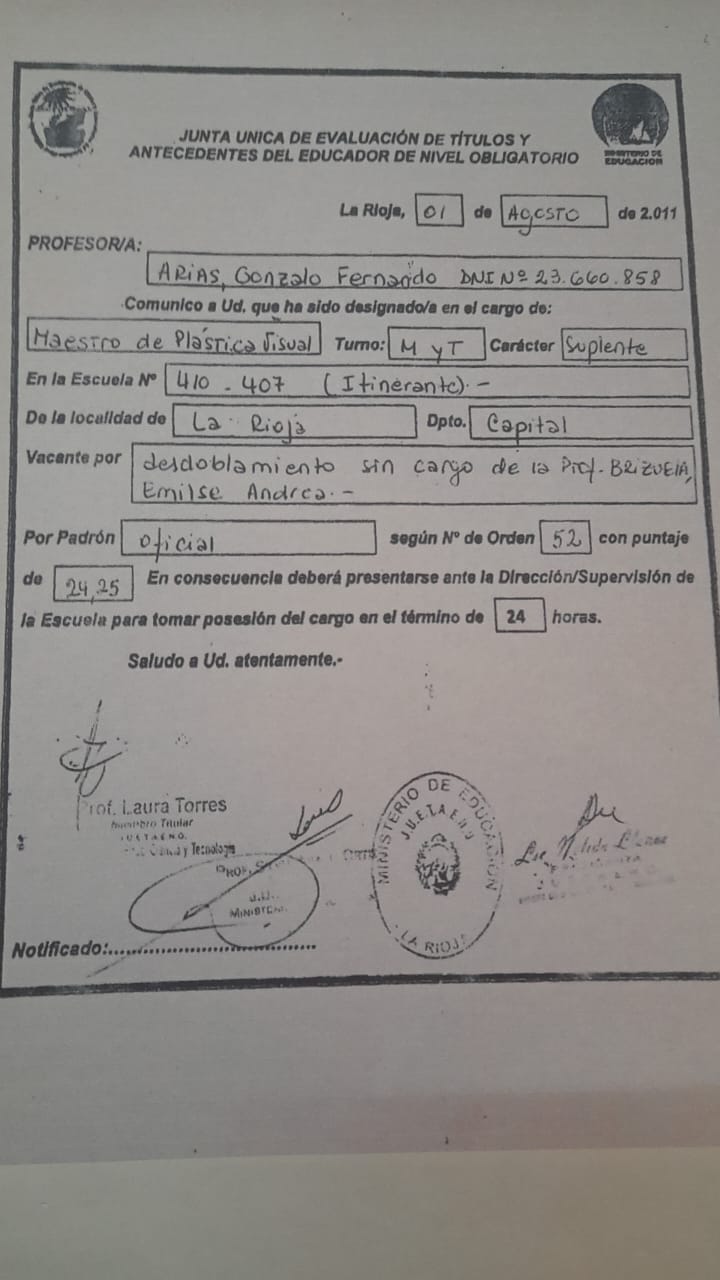 JUNTA UNICA DE EVALUACIÓN DE TÍTULOS Y
ANTECEDENTES DEL EDUCADOR DE NIVEL OBLIGATORIO
MINISTERIO DE
EDUCACION
La Rioja, 01 de AGOSTO de 2.011
PROFESOR/A:
ARIAS, Gonzalo Fernando DNI Nº 23.660.858
Comunico a Ud. que ha sido designado/a en el cargo de:
Maestro de Plástica Visual Turno: M y T Carácter Suplente
En la Escuela Nº 410 - 407 (Itinerante).-
De la localidad de La Rioja Dpto. Capital
Vacante por desdoblamiento sin cargo de la Prof. BRIZUELA,
Emilse Andrea.-
Por Padrón oficial según Nº de Orden 52 con puntaje
de 24,25 En consecuencia deberá presentarse ante la Dirección/Supervisión de
la Escuela para tomar posesión del cargo en el término de 24 horas.
Saludo a Ud. atentamente.-
Prof. Laura Torres
Miembro Titular
J.U.E.T.A.E.N.O.
y Tecnología
PROF.
MINISTERIO DE EDUCACIÓN
J.U.E.T.A.E.N.O
LA RIOJA
Lic.
Notificado:......................................